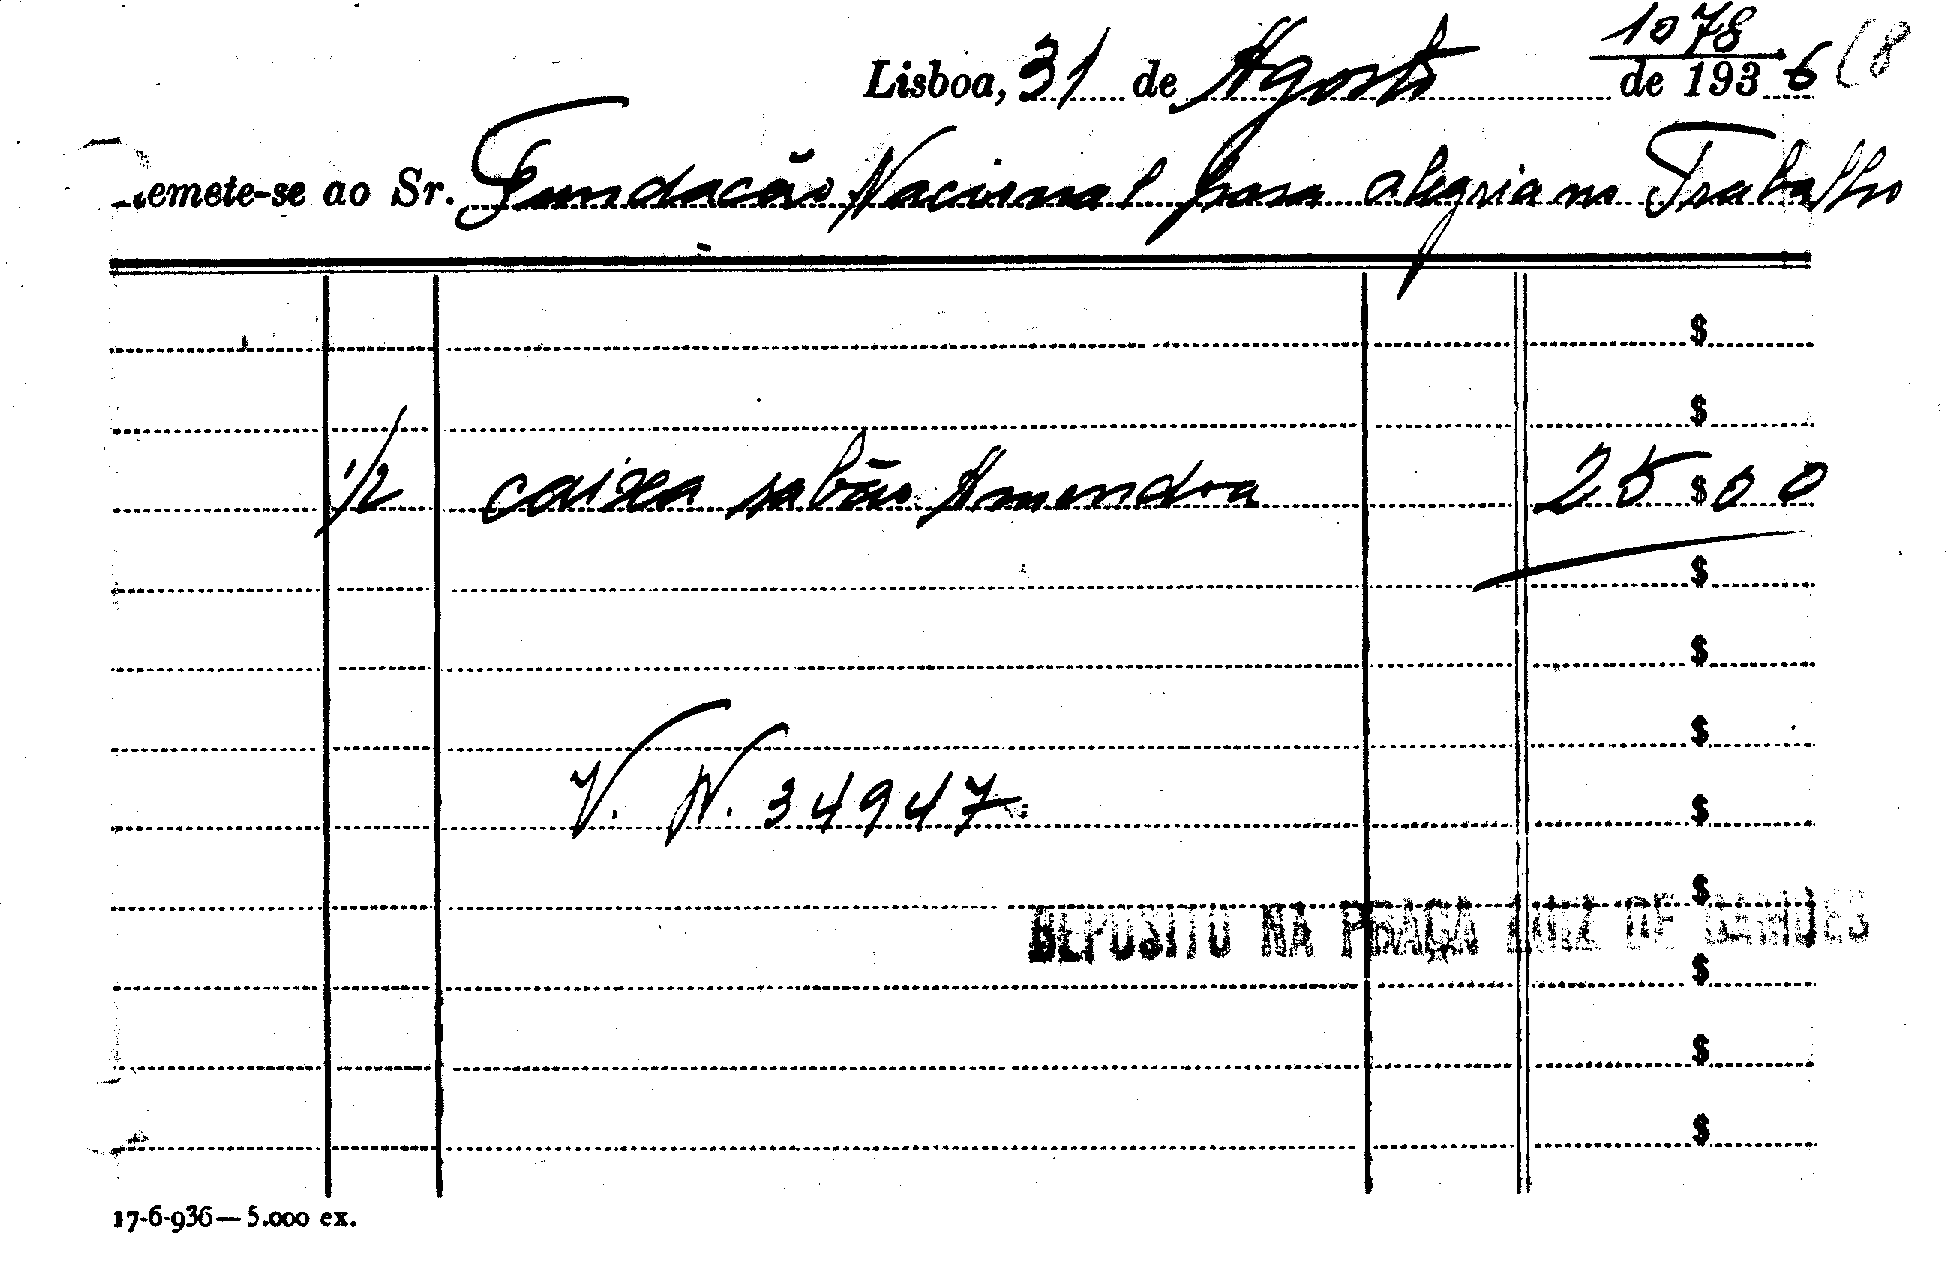 1078
Lisboa, 31 de Agosto de 1936 (8
emete-se ao Sr. Fundacão Nacional para alegria no Trabalho
$
$
1/2 caixa sabão Amendoa 25$00
$
$
$
V. N. 34947 $
$
DEPOSITO NA PRAÇA LUIZ DE CAMÕES
$
$
$
17-6-936—5.000 ex.